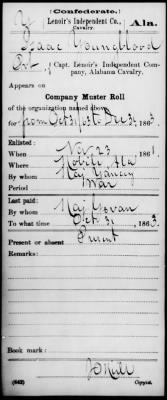 (Confederate.)
Y Lenoir's Independent Co., Ala.
Cavalry.
Isaac Youngblood
Pvt, { Capt. Lenoir's Independent Company, Alabama Cavalry.
Appears on
Company Muster Roll
of the organization named above
for from Oct 31st to Dec 31, 1863
Enlisted:
When Nov 23, 1861.
Where Mobile Ala
By whom Maj Yancey
Period War
Last paid:
By whom Maj Govan
To what time Oct. 31, 1863
Present or absent Present
Remarks:
Book mark:
(642) Copyist.